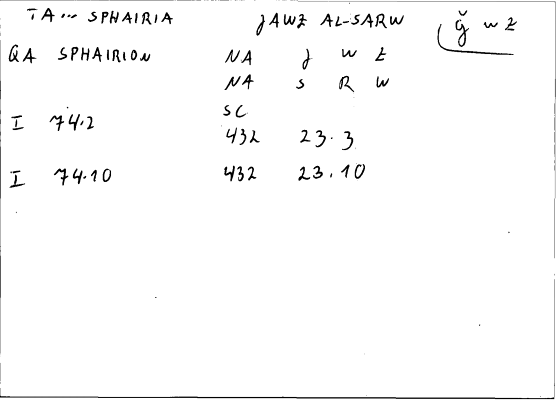 TA... SPHAIRIA JAWZ AL-SARW ǧ w z
QA SPHAIRION NA J W Z
NA S R W
SC
I 74.2 432 23.3
I 74.10 432 23.10